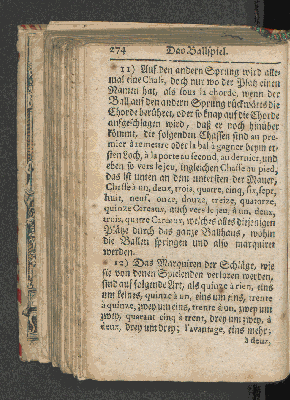 274 Das Ballspiel.
11) Auf den andern Sprung wird alle-
mal eine Chaß, doch nur wo der Platz einen
Namen hat, als sous la chorde, wenn der
Ball auf den andern Sprung rückwärts die
Chorde berühret, oder so knap auf die Chorde
aufgeschlagen wird, daß er noch hinüber
kömmt, die folgenden Chassen sind au pre-
mier à remettre oder la bal à gagner beym er-
sten Loch, à la porte au second, au dernier, und
eben so vers le jeu, ingleichen Chasse au pied,
das ist unten an dem untersten der Mauer,
Chasse à un, deux, trois, quatre, cinq, six, sept,
huit, neuf, onze, douze, treize, quatorze,
quinze Careaux, auch vers le jeu, à un, deux,
trois, quatre Careaux, welches alles diejenigen
Plätze durch das ganze Ballhaus, wohin
die Ballen springen und also marquiret
werden.
12) Das Marquiren der Schläge, wie
sie von denen Spielenden verloren werden,
sind auf folgende Art, als quinze à rien, eins
um keines, quinze à un, eins um eins, trente
à quinze, zwey um eins, trente à un, zwey um
zwey, quarant cinq à trent, drey um zwey, à
deux, drey um drey; l'avantage, eins mehr;
à deux,